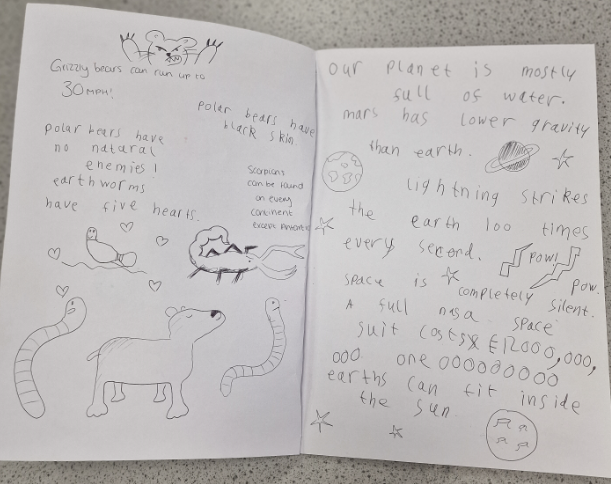 Grizzly bears can run up to
30 mph!
polar bears have
black skin
polar bears have
no natural
enemies!
earthworms
have five hearts.
Scorpions
can be found
on every
continent
except
our planet is mostly
full of water.
mars has lower gravity
than earth.
lightning strikes
the earth 100 times
every second.
POW!
POW.
space is completely silent.
A full nasa space
suit costs £12000,000,
000 one 000000000
earths can fit inside
the sun